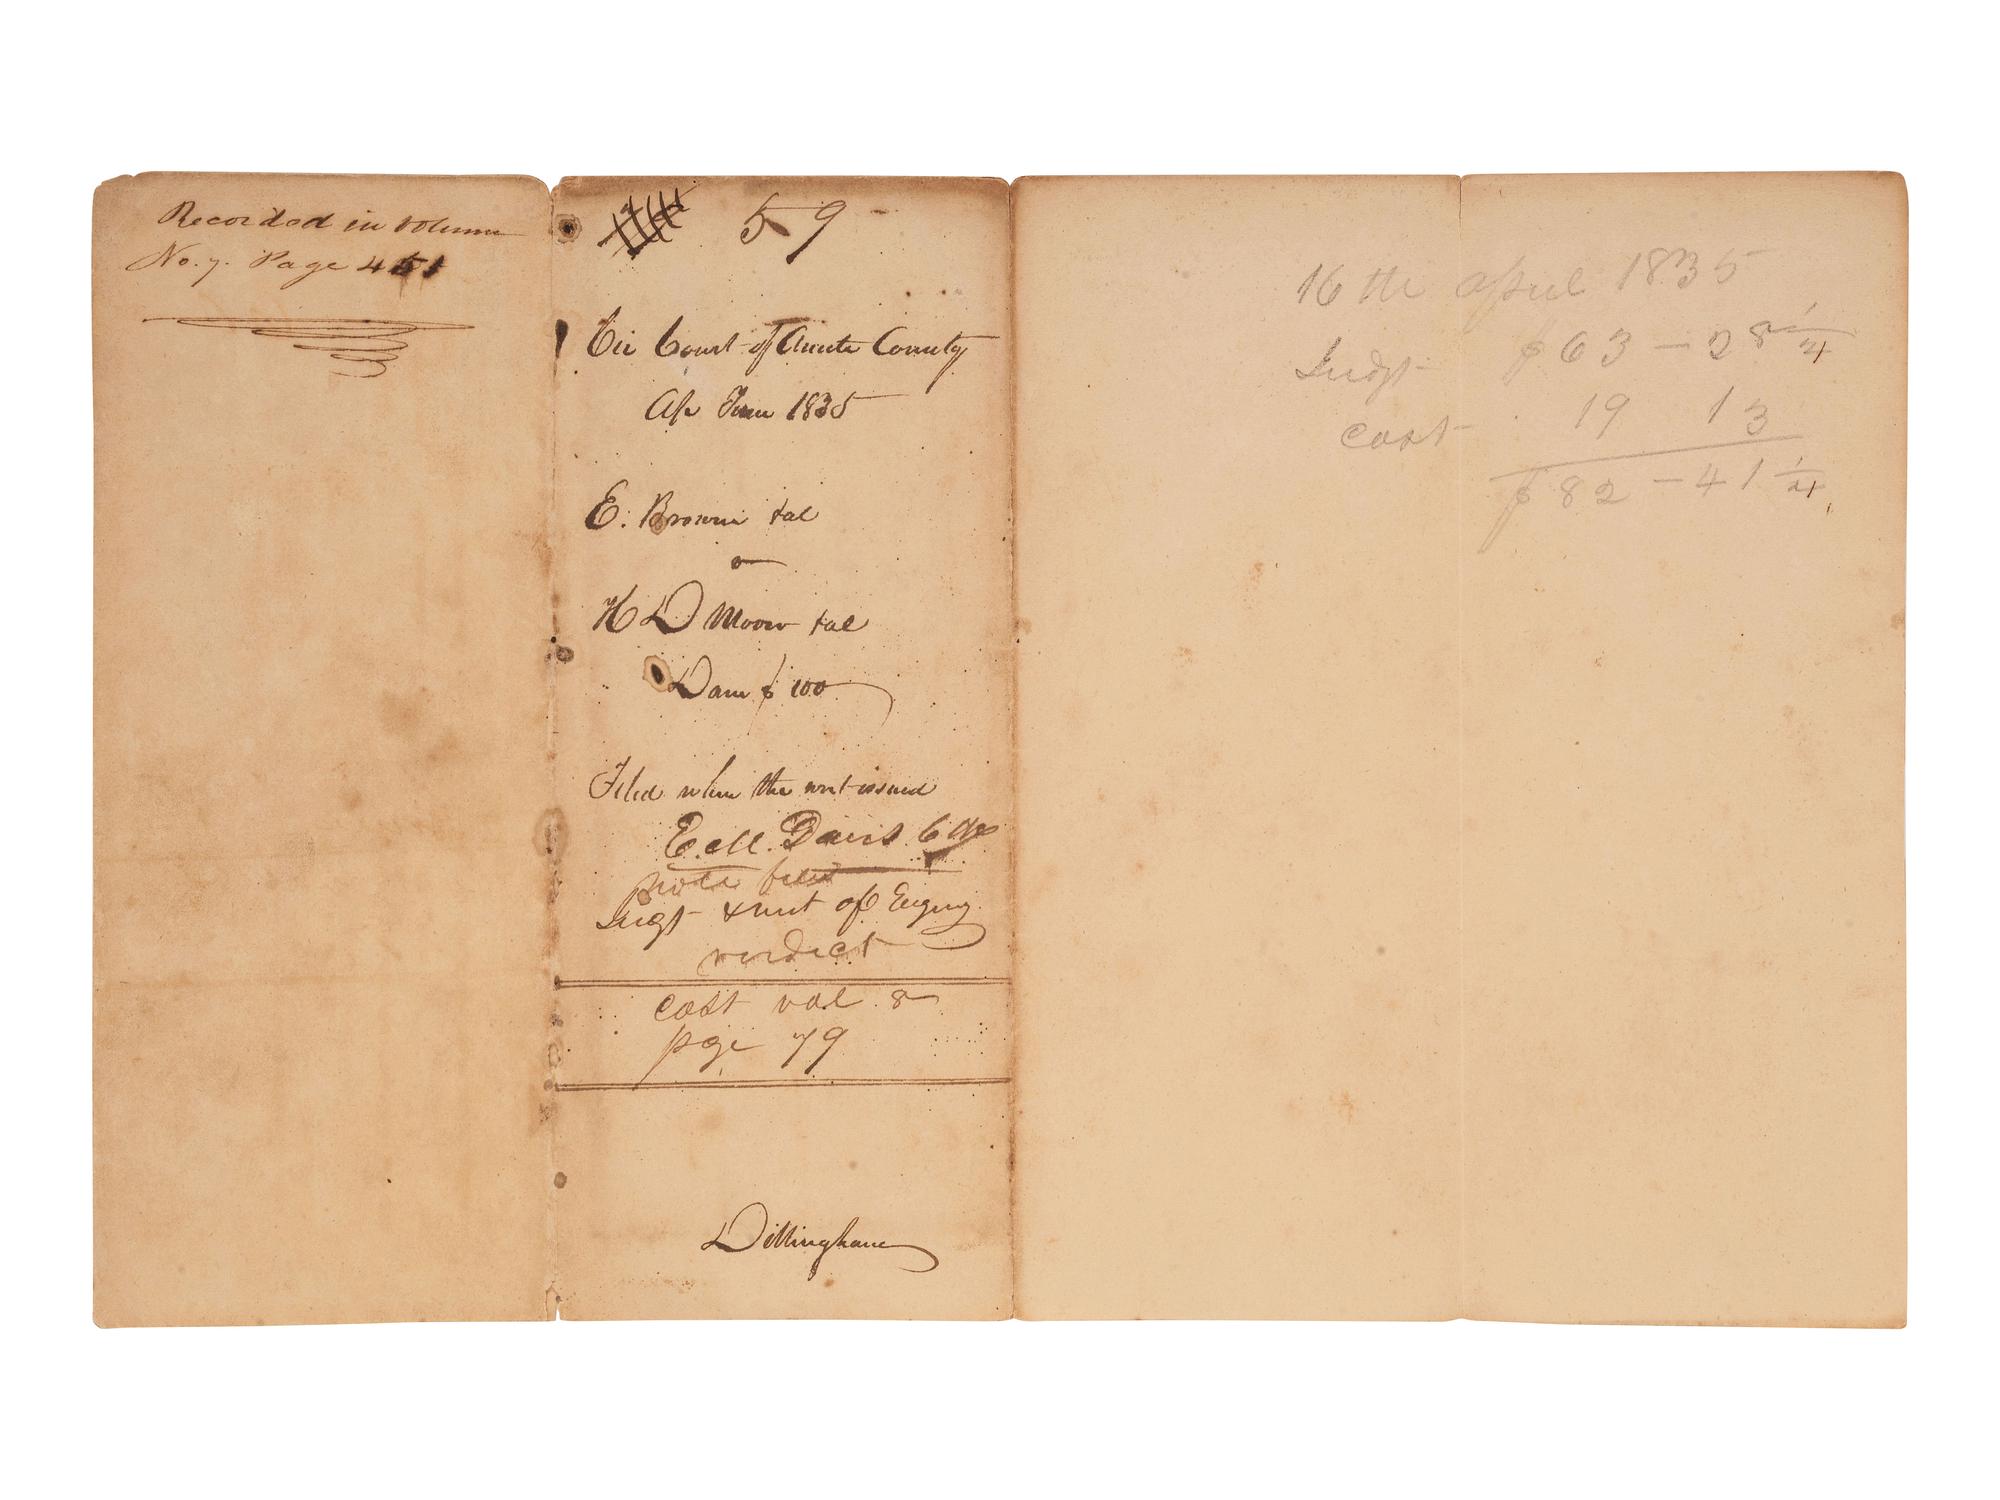 Recorded in volume
No. 7. Page 451
59
Cir Court of Amite County
Ap Term 1835
E. Brown & al
v
H D Moore & al
Dam $ 100
Filed when the writ issued
E. M. Davis Clk
note filed
Judgt & writ of Enquiry
verdict
Cost vol 8
pge 79
Dillingham
16th April 1835
Judgt $63 - 28 1/4
Cost 19 13
$82 - 41 1/4